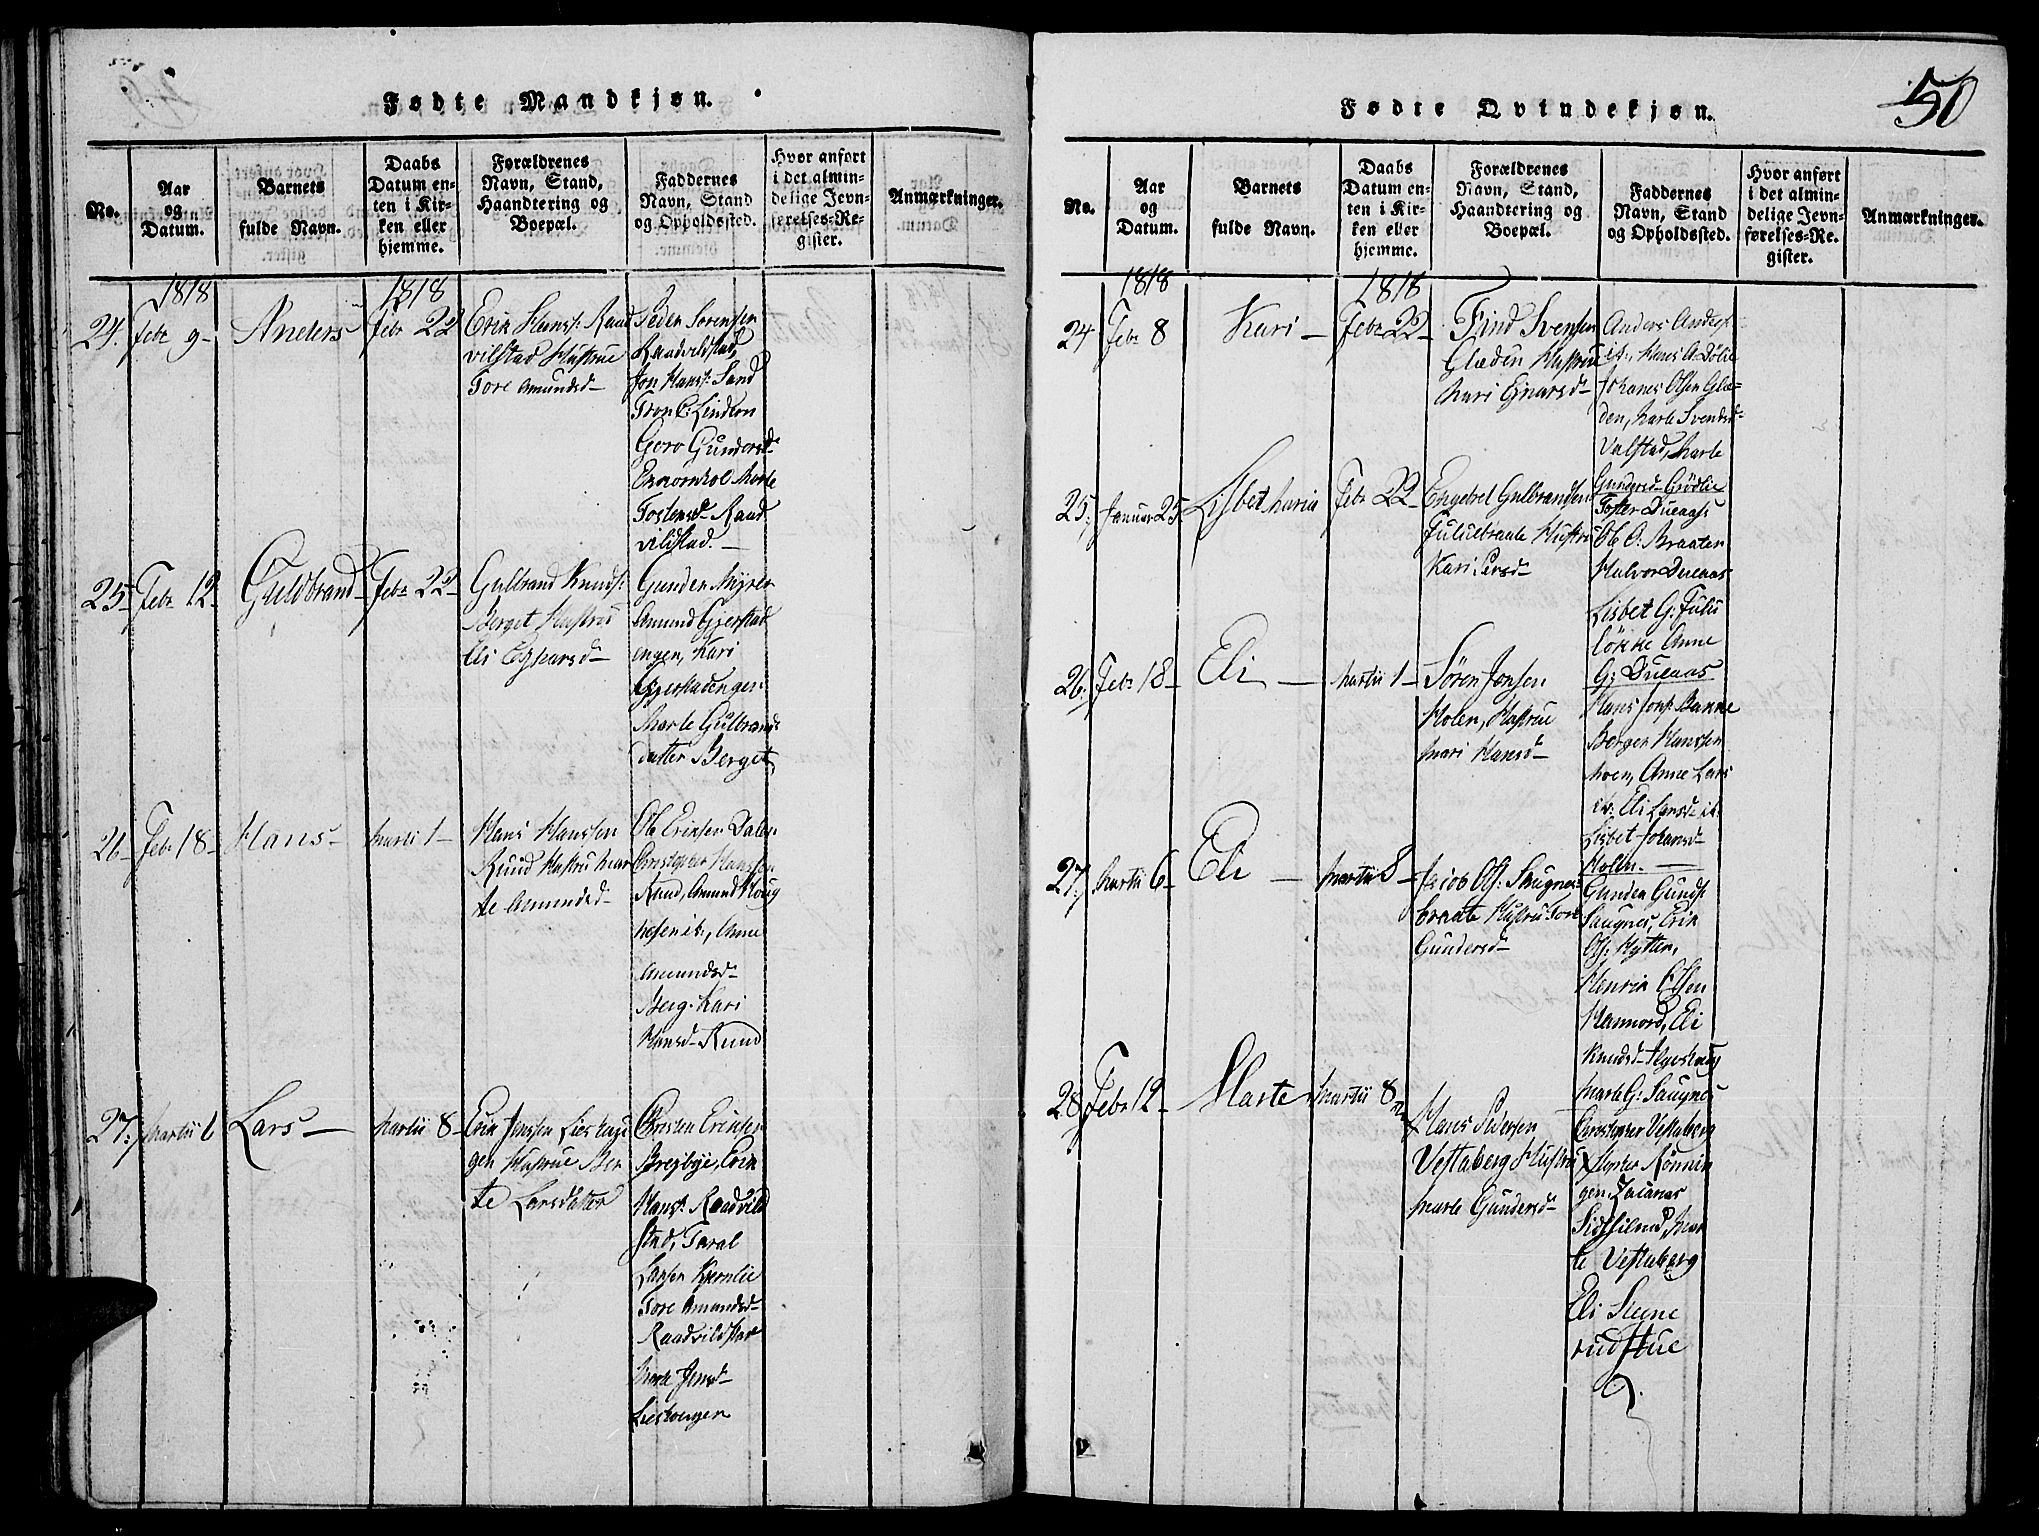 Fødte Mandkjøn.
No.
Aar
og
Datum.
Barnets
fulde Navn.
Daabs
Datum en-
ten i Kir-
ken eller
hjemme.
Forældrenes
Navn, Stand,
Haandtering og
Boepæl.
Faddernes
Navn, Stand
og Opholdssted.
Hvor anført
i det almin-
delige Jevn-
førelses-Re-
gister.
Anmærkninger.
1818
1818
24. Febr 9-
Anders
Febr 22
Erik Hans: Raad
vilstad Hustrue
Tore Amundsd-
Peder Sørensen
Raadvildstad,
Jon Hans: Sand
Tron C: Lindson
Goro Gundersd-
Marte
Tostensd- Raad
vildstad.-
25- Febr 12-
Guldbrand
Febr 22-
Gulbrand Knuds:
Berget Hustrue
Eli
Gunder Myrer
Amund Gjerstad
engen, Kari
Gjerstadengen
Marte Gulbrands
datter Berget
26- Febr 18-
Hans-
Martii 1-
Hans Hanssen
Ruud Hustru Mar
te Amundsd-
Ole Eriksen Dalen
Christopher Hanssen
Ruud, Amund Houg
it:, Anne
Amundsd-
Berg. Kari
Hansd- Ruud
27: Martii 6
Lars-
Martii 8-
Erik Jensen Lieshagi
gen Hustrue Ber
te Larsdatter
Christen Eriksen
Brejbye, Erik
Hans: Raadvild
stad, Taral
Larsen
Tore Amundsd-
Raadvildstad
Marte Jensd-
50
Fødte Qvindekjøn.
No.
Aar
og
Datum.
Barnets
fulde Navn.
Daabs
Datum en-
ten i Kir-
ken eller
hjemme.
Forældrenes
Navn, Stand,
Haandtering og
Boepæl.
Faddernes
Navn, Stand
og Opholdssted.
Hvor anført
i det almin-
delige Jevn-
førelses-Re-
gister.
Anmærkninger.
1818
1818
24 Febr 8
Kari-
Febr 22-
Find Svensen
Glæden Hustrue
Kari
Anders Anders:
it:, Hans A: Dølie
Johanes Olsen Glæ-
den, Marte Svendsd-
Valstad, Marte
Grødlie
25: Januar 25.
Lisbet Maria
Febr 22-
Engebret Gulbrandsen
Fulubraate Hustru
Kari Persd-
Toster Dueaas
Ole O: Braaten
Halvor Dueaas
Lisbet G: Fulu
løkke Anne
G: Dueaas
26: Febr 18-
Eli -
Martii 1-
Sören Jonsen
Molen, Hustrue
Mari Hansd-
Hans Jons: Bakke
Berger Hanssen
Moen, Anne Lars
it: Eli Larsd- it:
Lisbet Johansd-
Molen.-
27: Martii 6-
Eli -
Martii 8-
Jacob Ols: Saugnes-
braate Hustru Tore
Gundersd-
Gunder Gunds:
Saugnes, Erik
Ols: Hytten,
Henrik Olsen
Hamnord, Eli
Knudsd-
Marte G: Saugnes
28 Febr 12-
Marte
Martii 8
Hans Pedersen
Vestaberg Hustru
Marte Gundersd-
Christopher Vestaberg
Rønnin
gen, Zacarias
Mar
te Vestaberg
Eli
rudstue